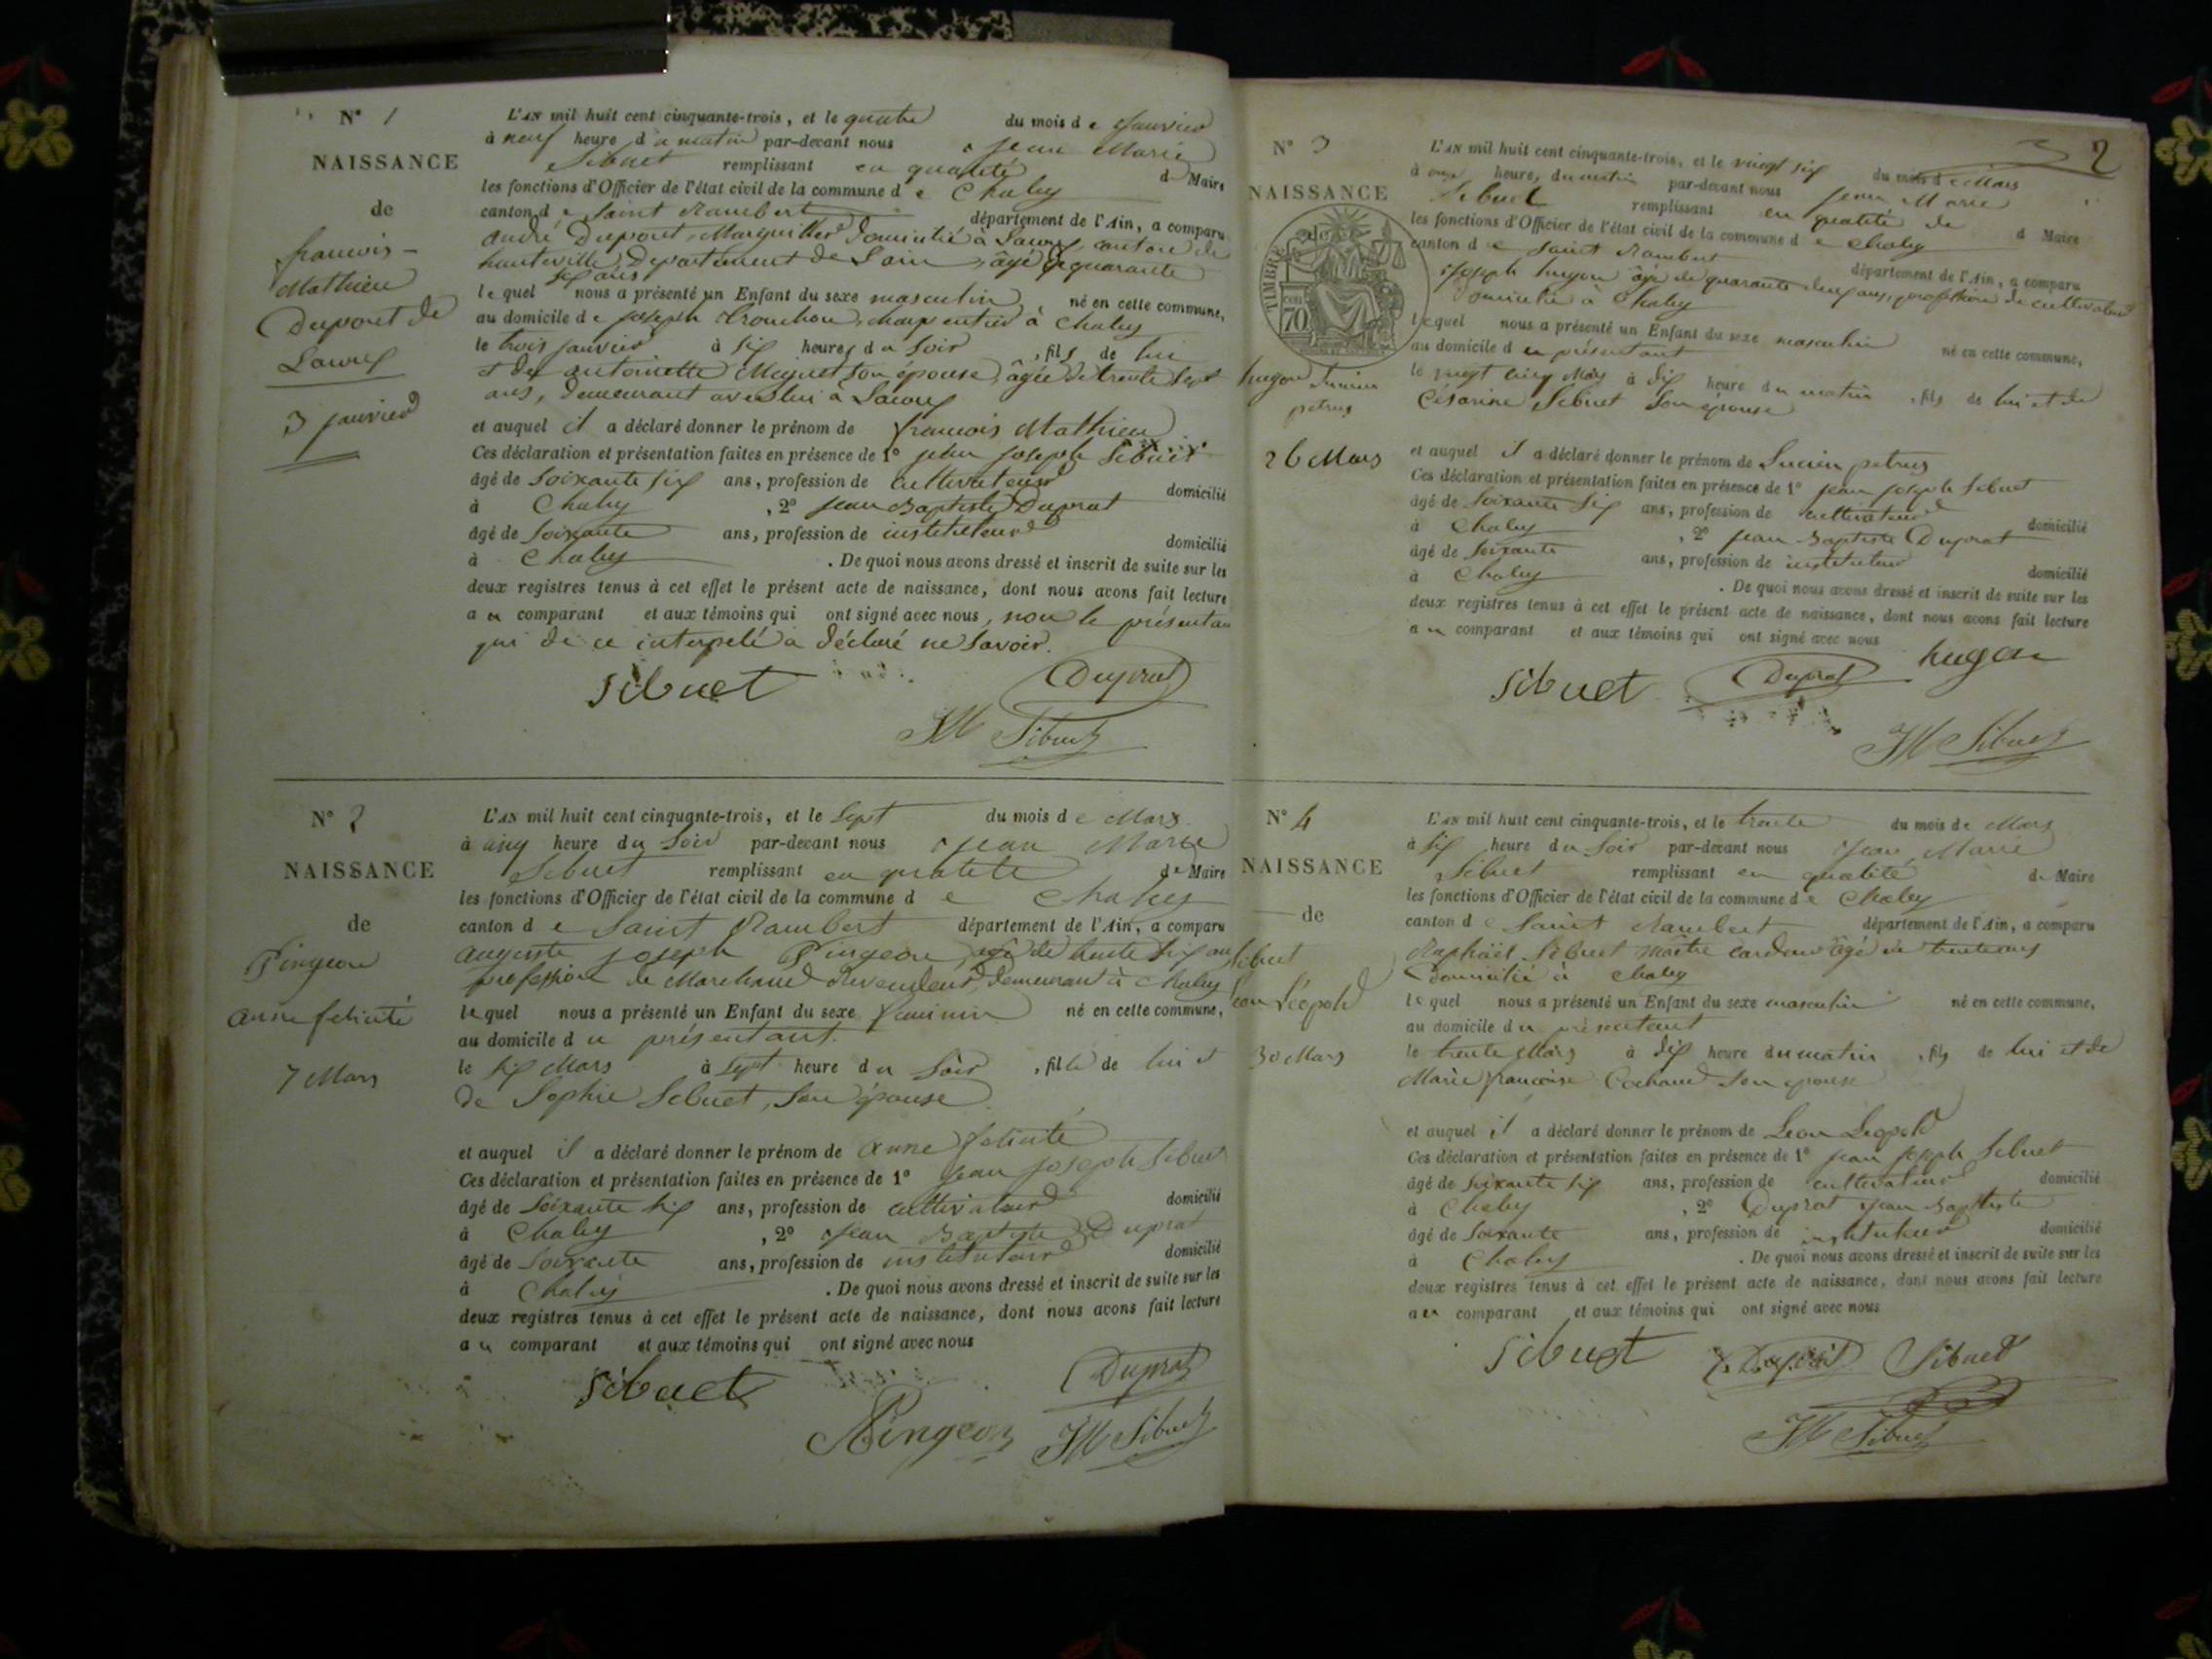 N° 1
NAISSANCE
de
francois-
Mathieu
Dupont de
3 janvier
L'AN mil huit cent cinquante-trois, et le quatre du mois de Janvier
à neuf heure du matin par-devant nous Jean Marie
Sibuet remplissant en qualité de Maire
les fonctions d'Officier de l'état civil de la commune de Chaley
canton de Saint Rambert département de l'Ain, a comparu
andré Dupont, domicilié à canton de
hauteville, Département de l'ain, âgé de quarante
six ans
lequel nous a présenté un Enfant du sexe masculin, né en cette commune,
au domicile de joseph charpentier à Chaley
le trois janvier à six heures du soir, fils de lui
et de antoinette son épouse, âgée de trente sept
ans, demeurant avec lui à
et auquel il a déclaré donner le prénom de francois Mathieu
Ces déclaration et présentation faites en présence de 1° jean joseph Sibuet
âgé de soixante six ans, profession de cultivateur domicilié
à Chaley, 2° jean Baptiste Duprat
âgé de soixante ans, profession de instituteur domicilié
à Chaley. De quoi nous avons dressé et inscrit de suite sur les
deux registres tenus à cet effet le présent acte de naissance, dont nous avons fait lecture
au comparant et aux témoins qui ont signé avec nous, non le présentant
qui de ce interpelé a déclaré ne savoir.
Sibuet Duprat
JM Sibuet
N° 2
NAISSANCE
de
Pingeon
anne felicité
7 Mars
L'AN mil huit cent cinquante-trois, et le sept du mois de Mars
à cinq heure du soir par-devant nous Jean Marie
Sibuet remplissant en qualité de Maire
les fonctions d'Officier de l'état civil de la commune de Chaley
canton de Saint Rambert département de l'Ain, a comparu
auguste joseph Pingeon, agé de trente six ans
profession de Marchand Revendeur, demeurant à Chaley
lequel nous a présenté un Enfant du sexe féminin né en cette commune,
au domicile du présentant.
le six Mars à sept heure du soir, fille de lui et
de Sophie Sibuet, son épouse
et auquel il a déclaré donner le prénom de anne felicité
Ces déclaration et présentation faites en présence de 1° jean joseph Sibuet
âgé de soixante six ans, profession de cultivateur domicilié
à Chaley, 2° jean Baptiste Duprat
âgé de soixante ans, profession de instituteur domicilié
à Chaley. De quoi nous avons dressé et inscrit de suite sur les
deux registres tenus à cet effet le présent acte de naissance, dont nous avons fait lecture
au comparant et aux témoins qui ont signé avec nous
Sibuet Duprat
Pingeon JM Sibuet
2
N° 3
NAISSANCE
de
TIMBRE
70
hugon Lucien
petrus
26 Mars
L'AN mil huit cent cinquante-trois, et le vingt six du mois de Mars
à onze heure, du matin par-devant nous Jean Marie
Sibuet remplissant en qualité de d Maire
les fonctions d'Officier de l'état civil de la commune de Chaley
canton de Saint Rambert département de l'Ain, a comparu
Joseph hugon âgé de quarante deux ans, profession de cultivateur
domicilié à Chaley
lequel nous a présenté un Enfant du sexe masculin né en cette commune,
au domicile du présentant
le vingt cinq Mars à dix heure du matin, fils de lui et de
Césarine Sibuet son épouse
et auquel il a déclaré donner le prénom de Lucien petrus
Ces déclaration et présentation faites en présence de 1° jean joseph Sibuet
âgé de soixante six ans, profession de cultivateur domicilié
à Chaley, 2° jean Baptiste Duprat
âgé de soixante ans, profession de instituteur domicilié
à Chaley. De quoi nous avons dressé et inscrit de suite sur les
deux registres tenus à cet effet le présent acte de naissance, dont nous avons fait lecture
au comparant et aux témoins qui ont signé avec nous
Sibuet Duprat hugon
JM Sibuet
N° 4
NAISSANCE
de
Sibuet
Léon Léopold
30 Mars
L'AN mil huit cent cinquante-trois, et le trente du mois de Mars
à six heure du soir par-devant nous Jean Marie
Sibuet remplissant en qualité de Maire
les fonctions d'Officier de l'état civil de la commune de Chaley
canton de Saint Rambert département de l'Ain, a comparu
Raphaël Sibuet maître cardeur âgé de trente ans
domicilié à Chaley
lequel nous a présenté un Enfant du sexe masculin né en cette commune,
au domicile du présentant
le trente Mars à dix heure du matin, fils de lui et de
Marie françoise son épouse
et auquel il a déclaré donner le prénom de Léon Léopold
Ces déclaration et présentation faites en présence de 1° jean joseph Sibuet
âgé de soixante six ans, profession de cultivateur domicilié
à Chaley, 2° Duprat jean Baptiste
âgé de soixante ans, profession de instituteur domicilié
à Chaley. De quoi nous avons dressé et inscrit de suite sur les
deux registres tenus à cet effet le présent acte de naissance, dont nous avons fait lecture
au comparant et aux témoins qui ont signé avec nous
Sibuet Duprat Sibuet
JM Sibuet